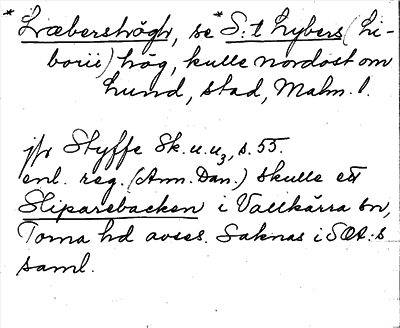 *Læbershögh, se *S:t Lybers (Li-
borii) hög, kulle nordost om
Lund, stad, Malm. l.
jfr Styffe Sk.u.u3, s. 55.
enl. reg. (Ann. Dan.) skulle ett
Sliparebacken i Vallkärra sn,
Torna hd avses. Saknas i SOA:s
saml.